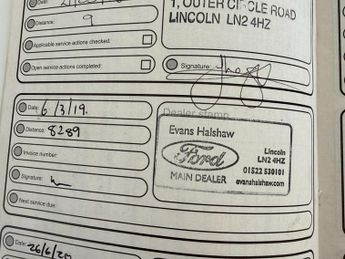 Date:
Distance: 9
Applicable service actions checked:
Open service actions completed:
1, OUTER CIRCLE ROAD
LINCOLN LN2 4HZ
Signature:
Date: 6/3/19.
Distance: 8289
Invoice number:
Signature:
Next service due:
Dealer stamp
Evans Halshaw
Ford
MAIN DEALER
Lincoln
LN2 4HZ
01522 530101
evanshalshaw.com
Date: 26/6/20